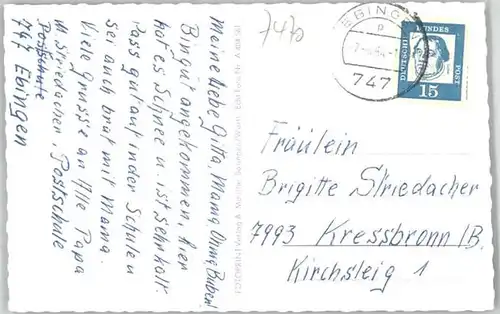 Meine liebe Gitta, Mama, Ohma, Buberl
Bin gut angekommen, hier
hat es Schnee u. ist sehr kalt.
Pass gut auf in der Schule u
sei auch brat mit Mama.
Viele grüsse an Alle Papa
M. Striedacher, Postschule
Postschule
747 Ebingen
7470
EBINGEN
p
747
DEUTSCHE BUNDESPOST
15
Fräulein
Brigitte Striedacher
7993 Kressbronn/B.
Kirchsteig 1